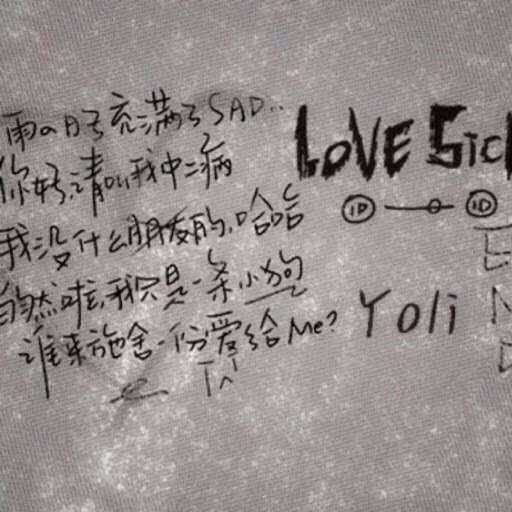 雨の日子充满了SAD..
你好,请叫我中二病
我没什么朋友的,哈哈
的然啦,我只是一条小狗
谁来施舍一份爱给Me?
LOVE Sic
ID ID
Yoli
E
N
D